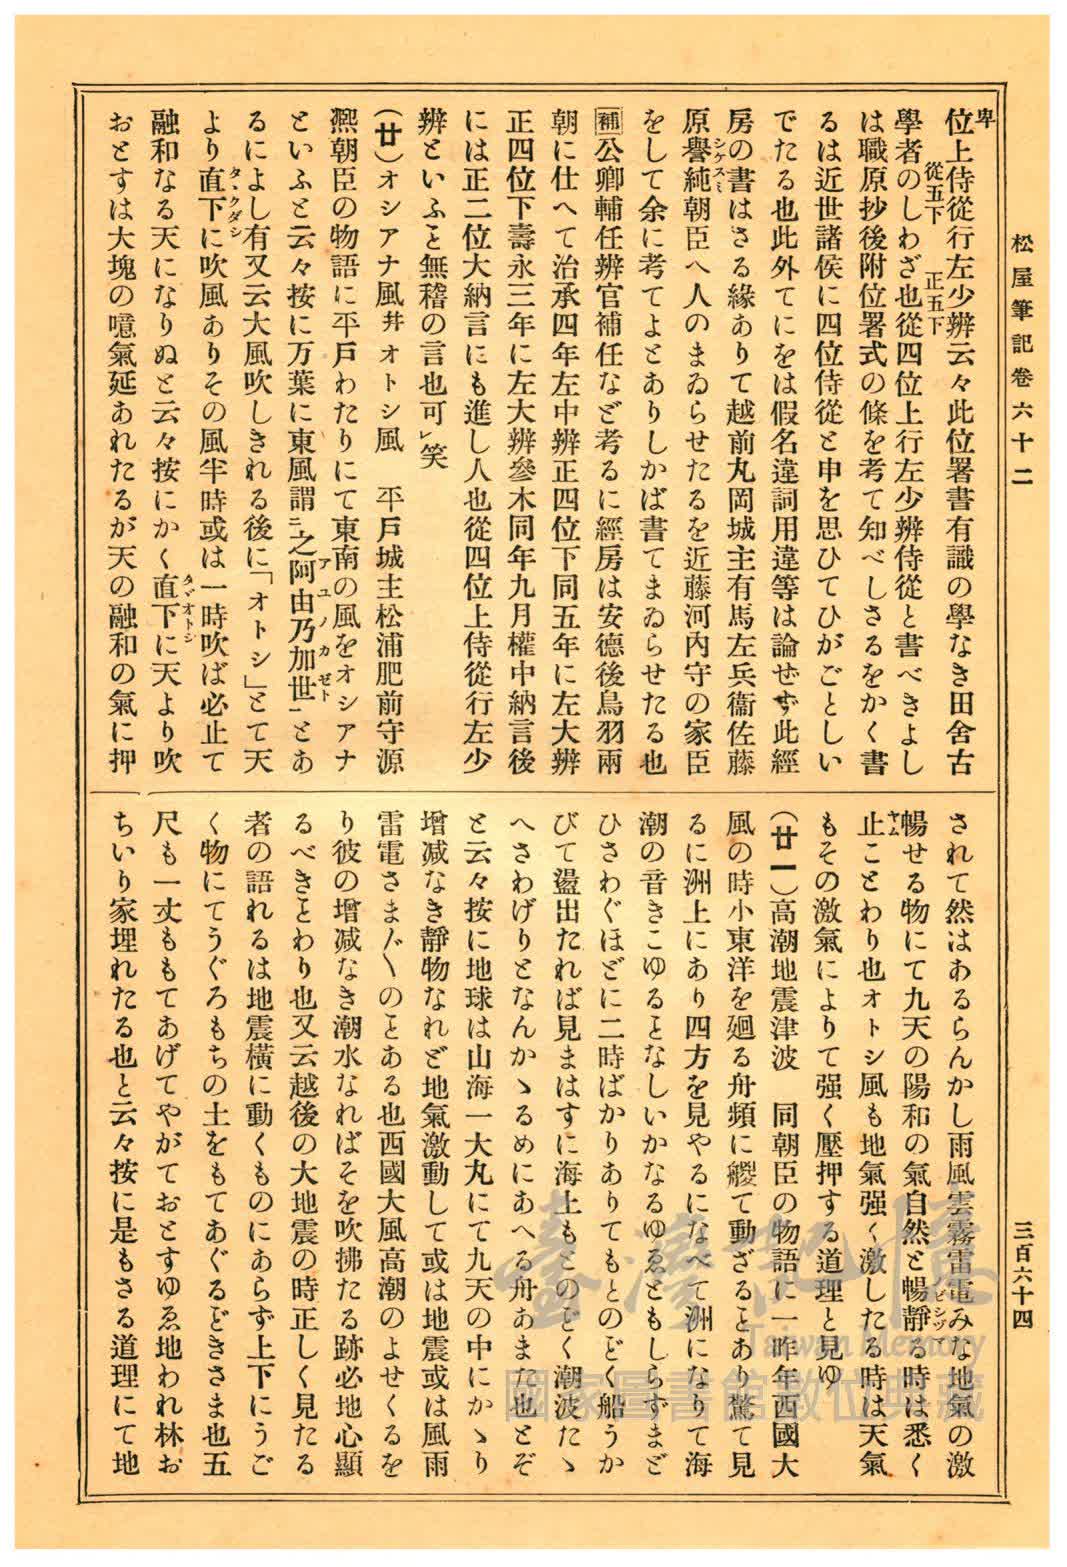 松屋筆記卷六十二
三百六十四
位上侍從行左少辨云々此位署書有識の學なき田舍古
卑
學者のしわざ也從四位上行左少辨侍從と書べきよし
從五下 正五下
は職原抄後附位署式の條を考て知べしさるをかく書
るは近世諸侯に四位侍從と申を思ひてひがごとしい
でたる也此外てにをは假名違詞用違等は論せず此經
房の書はさる緣ありて越前丸岡城主有馬左兵衞佐藤
原譽純朝臣へ人のまゐらせたるを近藤河內守の家臣
シケスミ
をして余に考てよとありしかば書てまゐらせたる也
補公卿輔任辨官補任など考るに經房は安德後鳥羽兩
朝に仕へて治承四年左中辨正四位下同五年に左大辨
正四位下壽永三年に左大辨參木同年九月權中納言後
には正二位大納言にも進し人也從四位上侍從行左少
辨といふと無稽の言也可レ笑
(廿)オシアナ風幷オトシ風 平戶城主松浦肥前守源
凞朝臣の物語に平戶わたりにて東南の風をオシアナ
といふと云々按に万葉に東風謂二之阿由乃加世一とあ
アユノカゼト
るによし有又云大風吹しきれる後に「オトシ」とて天
より直下に吹風ありその風半時或は一時吹ば必止て
タヽクダシ
融和なる天になりぬと云々按にかく直下に天より吹
タヾオトシ
おとすは大塊の噫氣延あれたるが天の融和の氣に押
されて然はあるらんかし雨風雲霧雷電みな地氣の激
暢せる物にて九天の陽和の氣自然と暢靜る時は悉く
ノビシヅマ
止ことわり也オトシ風も地氣强く激したる時は天氣
ヤム
もその激氣によりて强く壓押する道理と見ゆ
(廿一)高潮地震津波 同朝臣の物語に一昨年西國大
風の時小東洋を廻る舟頻に艐て動ざるとあり驚て見
るに洲上にあり四方を見やるになべて洲になりて海
潮の音きこゆるとなしいかなるゆゑともしらずまど
ひさわぐほどに二時ばかりありてもとのどく船うか
びて盪出たれば見まはすに海上もとのどく潮波たゝ
へさわげりとなんかゝるめにあへる舟あまた也とぞ
と云々按に地球は山海一大丸にて九天の中にかゝり
增減なき靜物なれど地氣激動して或は地震或は風雨
雷電さま〴〵のとある也西國大風高潮のよせくるを
り彼の增減なき潮水なればそを吹拂たる跡必地心顯
るべきとわり也又云越後の大地震の時正しく見たる
者の語れるは地震橫に動くものにあらず上下にうご
く物にてうぐろもちの土をもてあぐるどきさま也五
尺も一丈ももてあげてやがておとすゆゑ地われ林お
ちいり家埋れたる也と云々按に是もさる道理にて地
臺灣記憶
Taiwan Memory
國家圖書館數位典藏